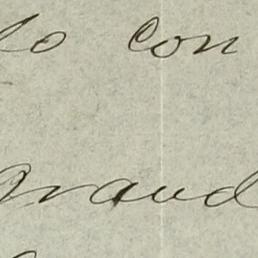 lo con
grand